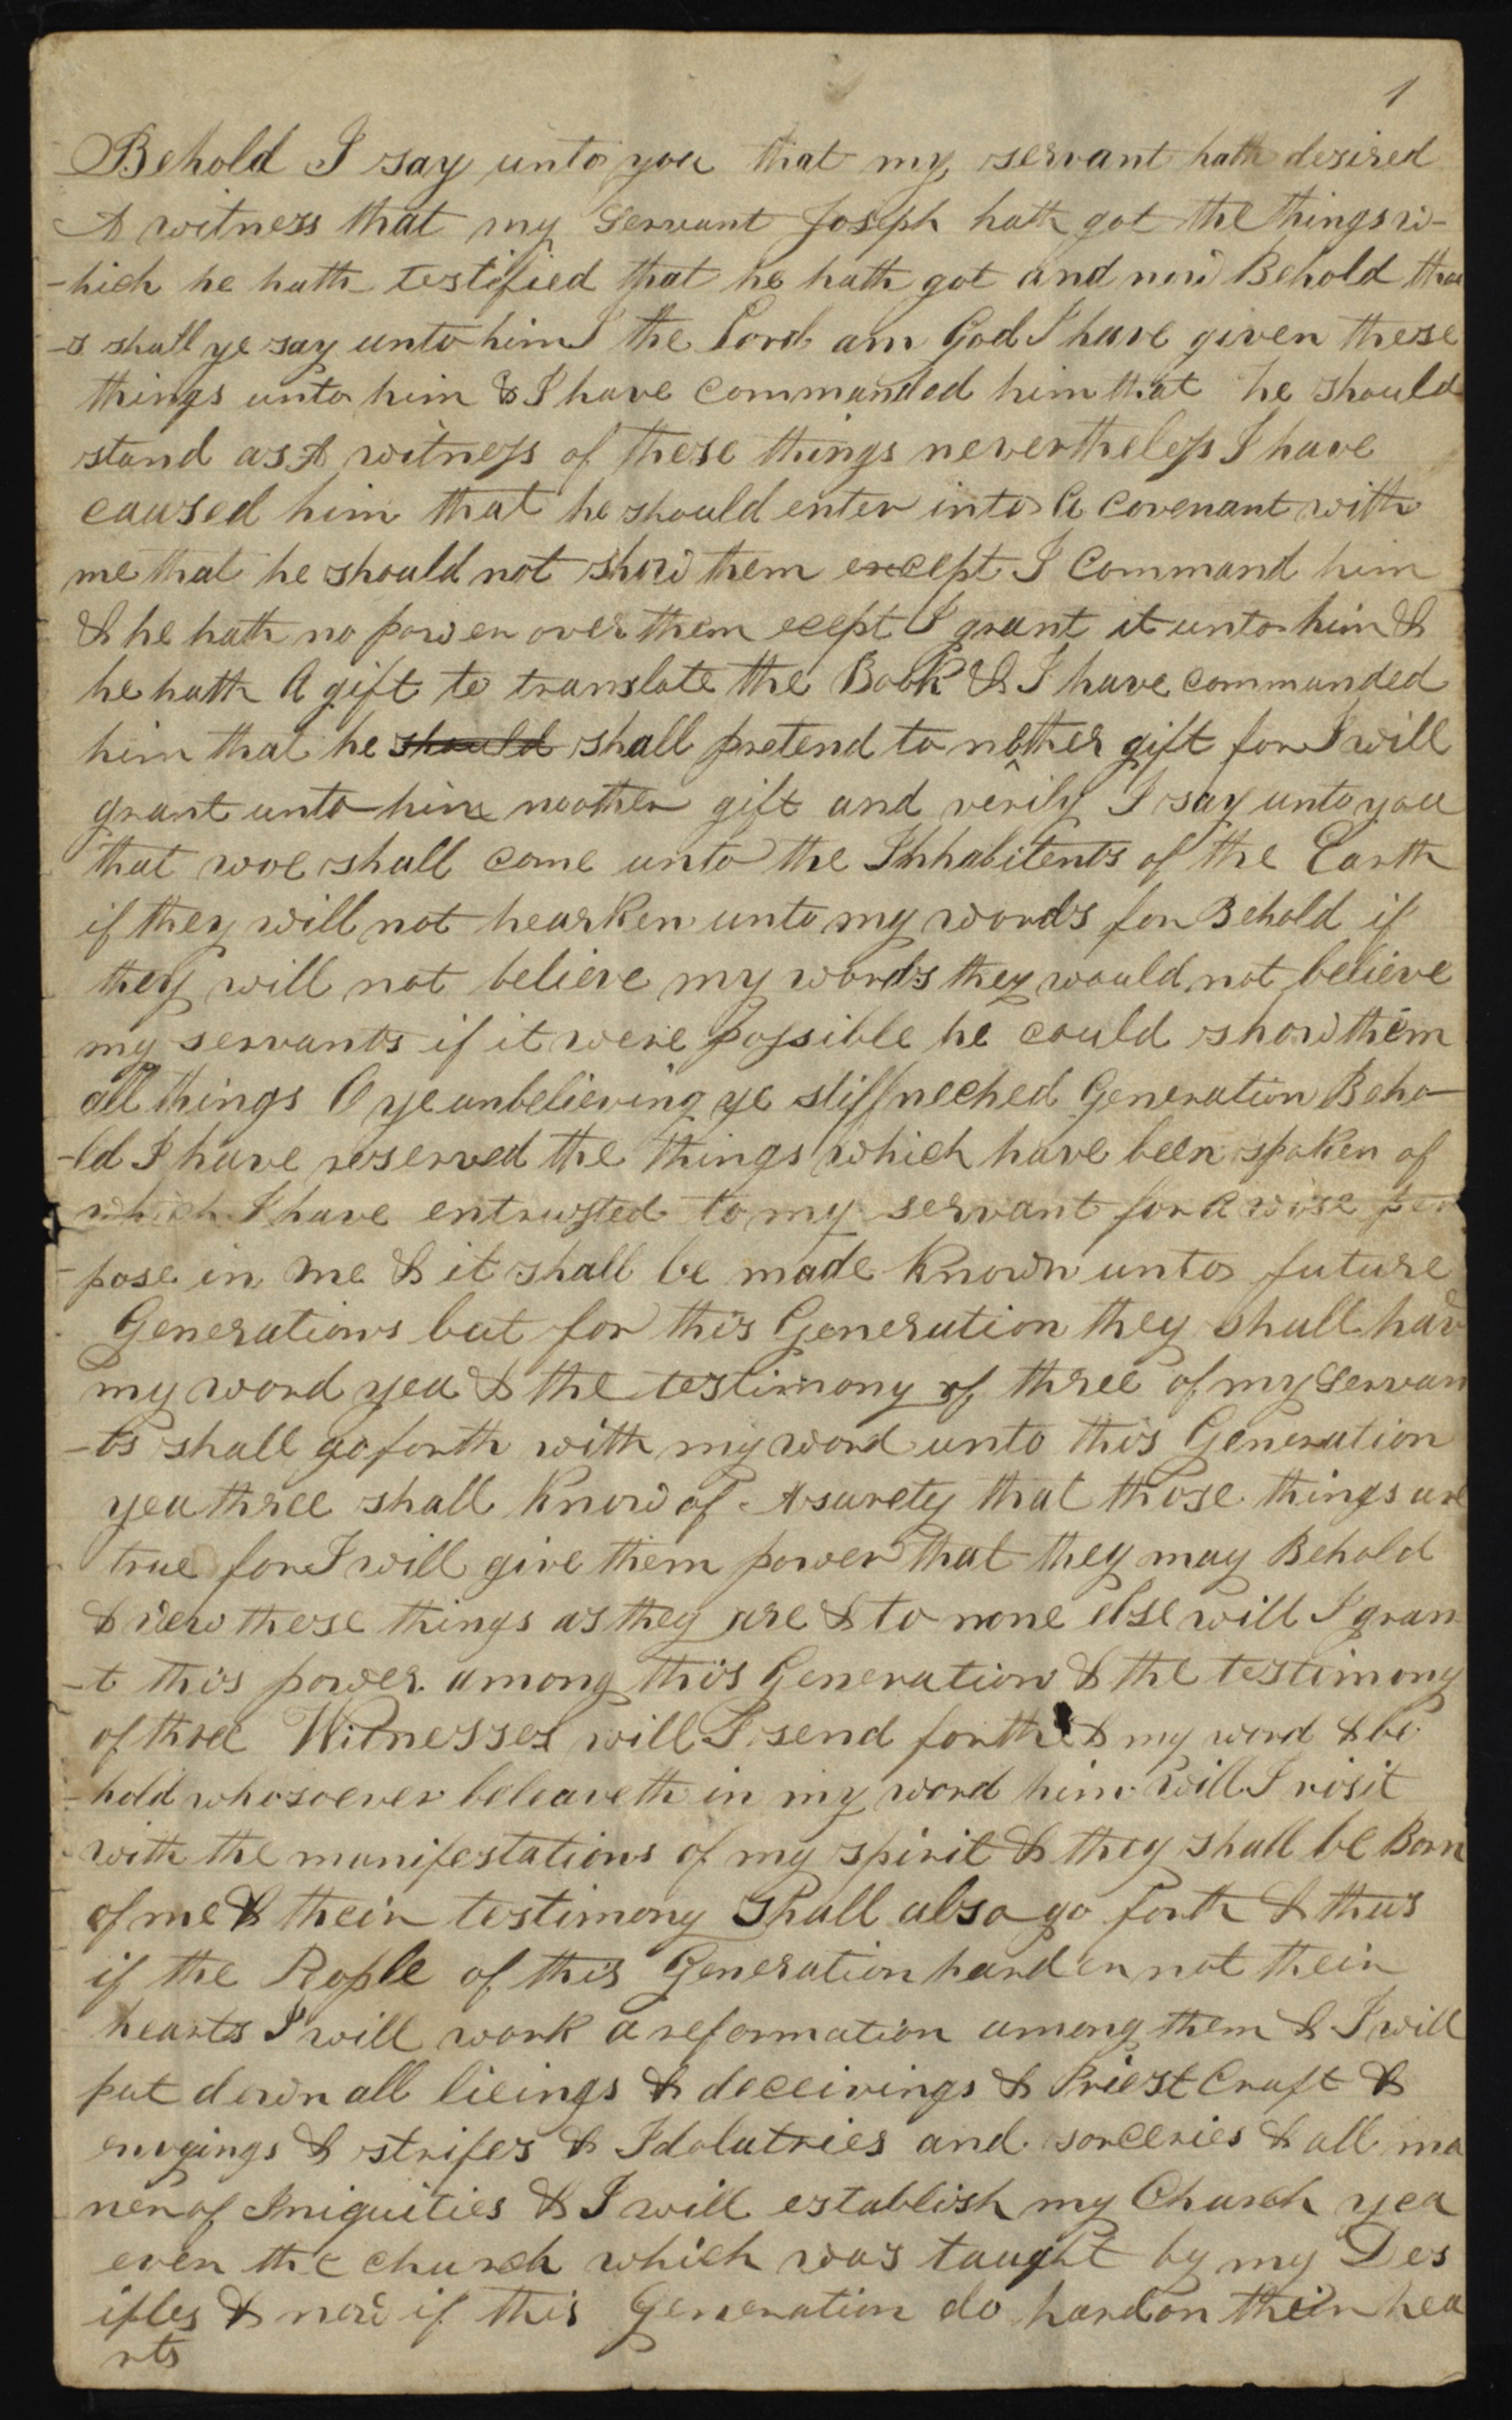 1
Behold I say unto you that my servant hath desired
A witness that my Servant Joseph hath got the things w-
-hich he hath testified that he hath got and now Behold thou
-s shall ye say unto him I the Lord am God I have given these
things unto him & I have commanded him that he should
stand as A witness of these things nevertheless I have
caused him that he should enter into A covenant with
me that he should not show them except I command him
& he hath no power over them ecept I grant it unto him &
he hath A gift to translate the Book & I have commanded
him that he should shall pretend to no other gift for I will
grant unto him no other gift and verily I say unto you
that woe shall come unto the Inhabitents of the Earth
if they will not hearken unto my words for Behold if
they will not believe my words they would not believe
my servants if it were possible he could show them
all things O ye unbelieving ye stiffnecked Generation Beho-
-ld I have reserved the things which have been spoken of
which I have entrusted to my servant for a wise per
-pose in me & it shall be made known unto future
Generations but for this Generation they shall have
my word yea & the testimony of three of my Servan
-ts shall go forth with my word unto this Generation
yea three shall know of A surety that those things are
true for I will give them power that they may Behold
& view these things as they are & to none else will I gran
-t this power among this Generation & the testimony
of three Witnesses will I send forth & my word & be
-hold whosoever beleaveth in my word him will I visit
with the manifestations of my spirit & they shall be Born
of me & their testimony shall also go forth & thus
if the People of this Generation harden not their
hearts I will work a reformation among them & I will
put down all lieings & deceivings & Priest Craft &
envyings & strifes & Idolatries and sorceries & all ma
ner of Iniquities & I will establish my Church yea
even the church which was taught by my Des
iples & now if this Generation do hardon their hea
rts